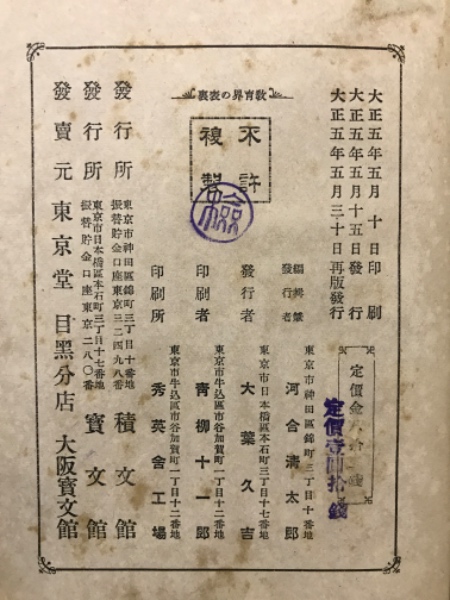 大正五年五月十日印刷
大正五年五月十五日發行
大正五年五月三十日再版發行
定價金八拾錢
定價壹圓拾錢
教育界の表裏
不許
複製
編輯兼
發行者
東京市神田區錦町三丁目十番地
河合清太郎
發行者
東京市日本橋區本石町三丁目十七番地
大葉久吉
印刷者
東京市牛込區市谷加賀町一丁目十二番地
青柳十一郎
印刷所
東京市牛込區市谷加賀町一丁目十二番地
秀英舍工場
發行所
東京市神田區錦町三丁目十番地
振替貯金口座東京三二四九八番
積文館
發行所
東京市日本橋區本石町三丁目十七番地
振替貯金口座東京二八〇番
寶文館
發賣元 東京堂 目黑分店 大阪寶文館